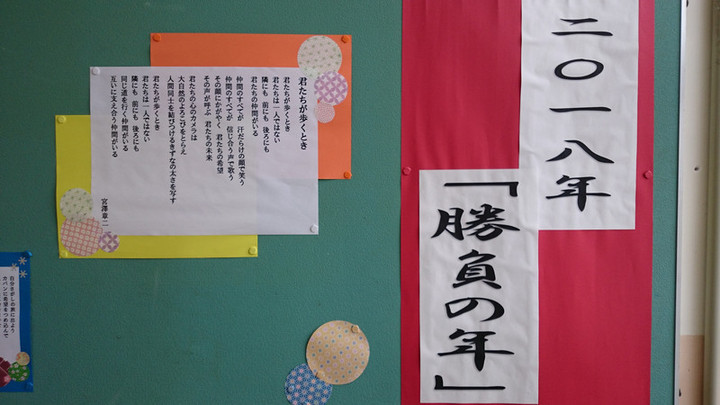 二〇一八年
「勝負の年」
君たちが歩くとき
君たちが歩くとき
君たちは一人ではない
隣にも 前にも 後ろにも
君たちの仲間がいる
仲間のすべてが 汗だらけの顔で笑う
仲間のすべてが 信じ合う声で歌う
その顔にかがやく 君たちの希望
その声が呼ぶ 君たちの未来
君たちの心のカメラは
大自然のよろこびをとらえ
人間同士を結びつけるきずなの太さを写す
君たちが歩くとき
君たちは一人ではない
隣にも 前にも 後ろにも
同じ道を行く仲間がいる
互いに支え合う仲間がいる
宮澤章二
自分さがしの旅に出よう
カバンに希望をつめ込んで